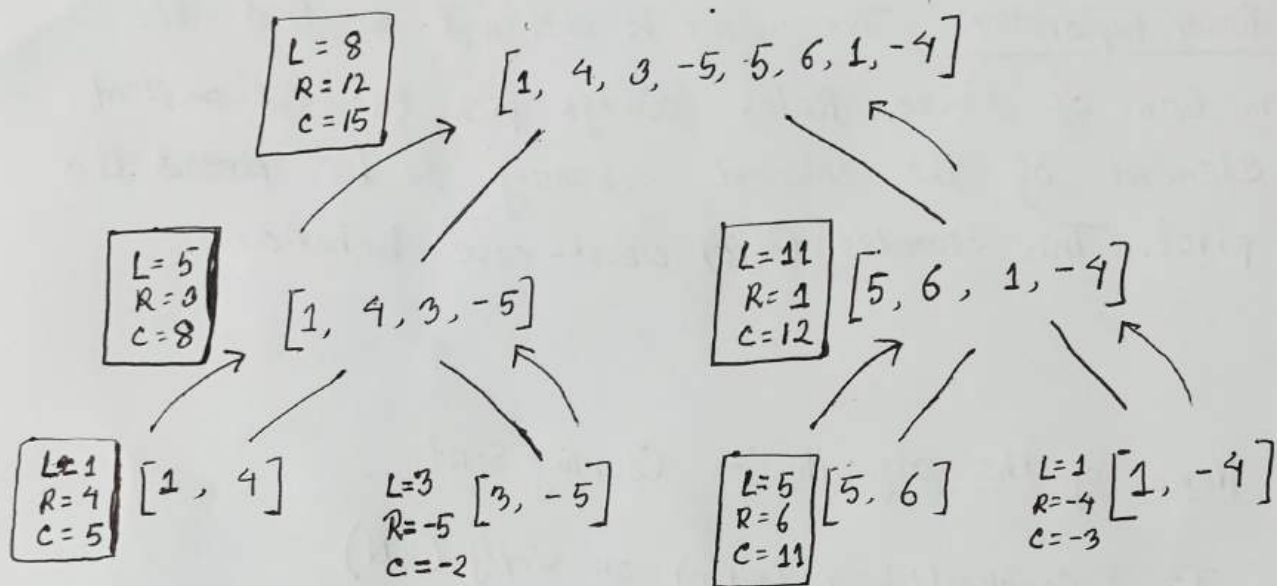 L = 8
R = 12
C = 15
[1, 4, 3, -5, 5, 6, 1, -4]
L = 5
R = 3
C = 8
[1, 4, 3, -5]
L = 11
R = 1
C = 12
[5, 6, 1, -4]
L = 1
R = 4
C = 5
[1, 4]
L=3
R=-5
C=-2
[3, -5]
L=5
R=6
C=11
[5, 6]
L=1
R=-4
C=-3
[1, -4]